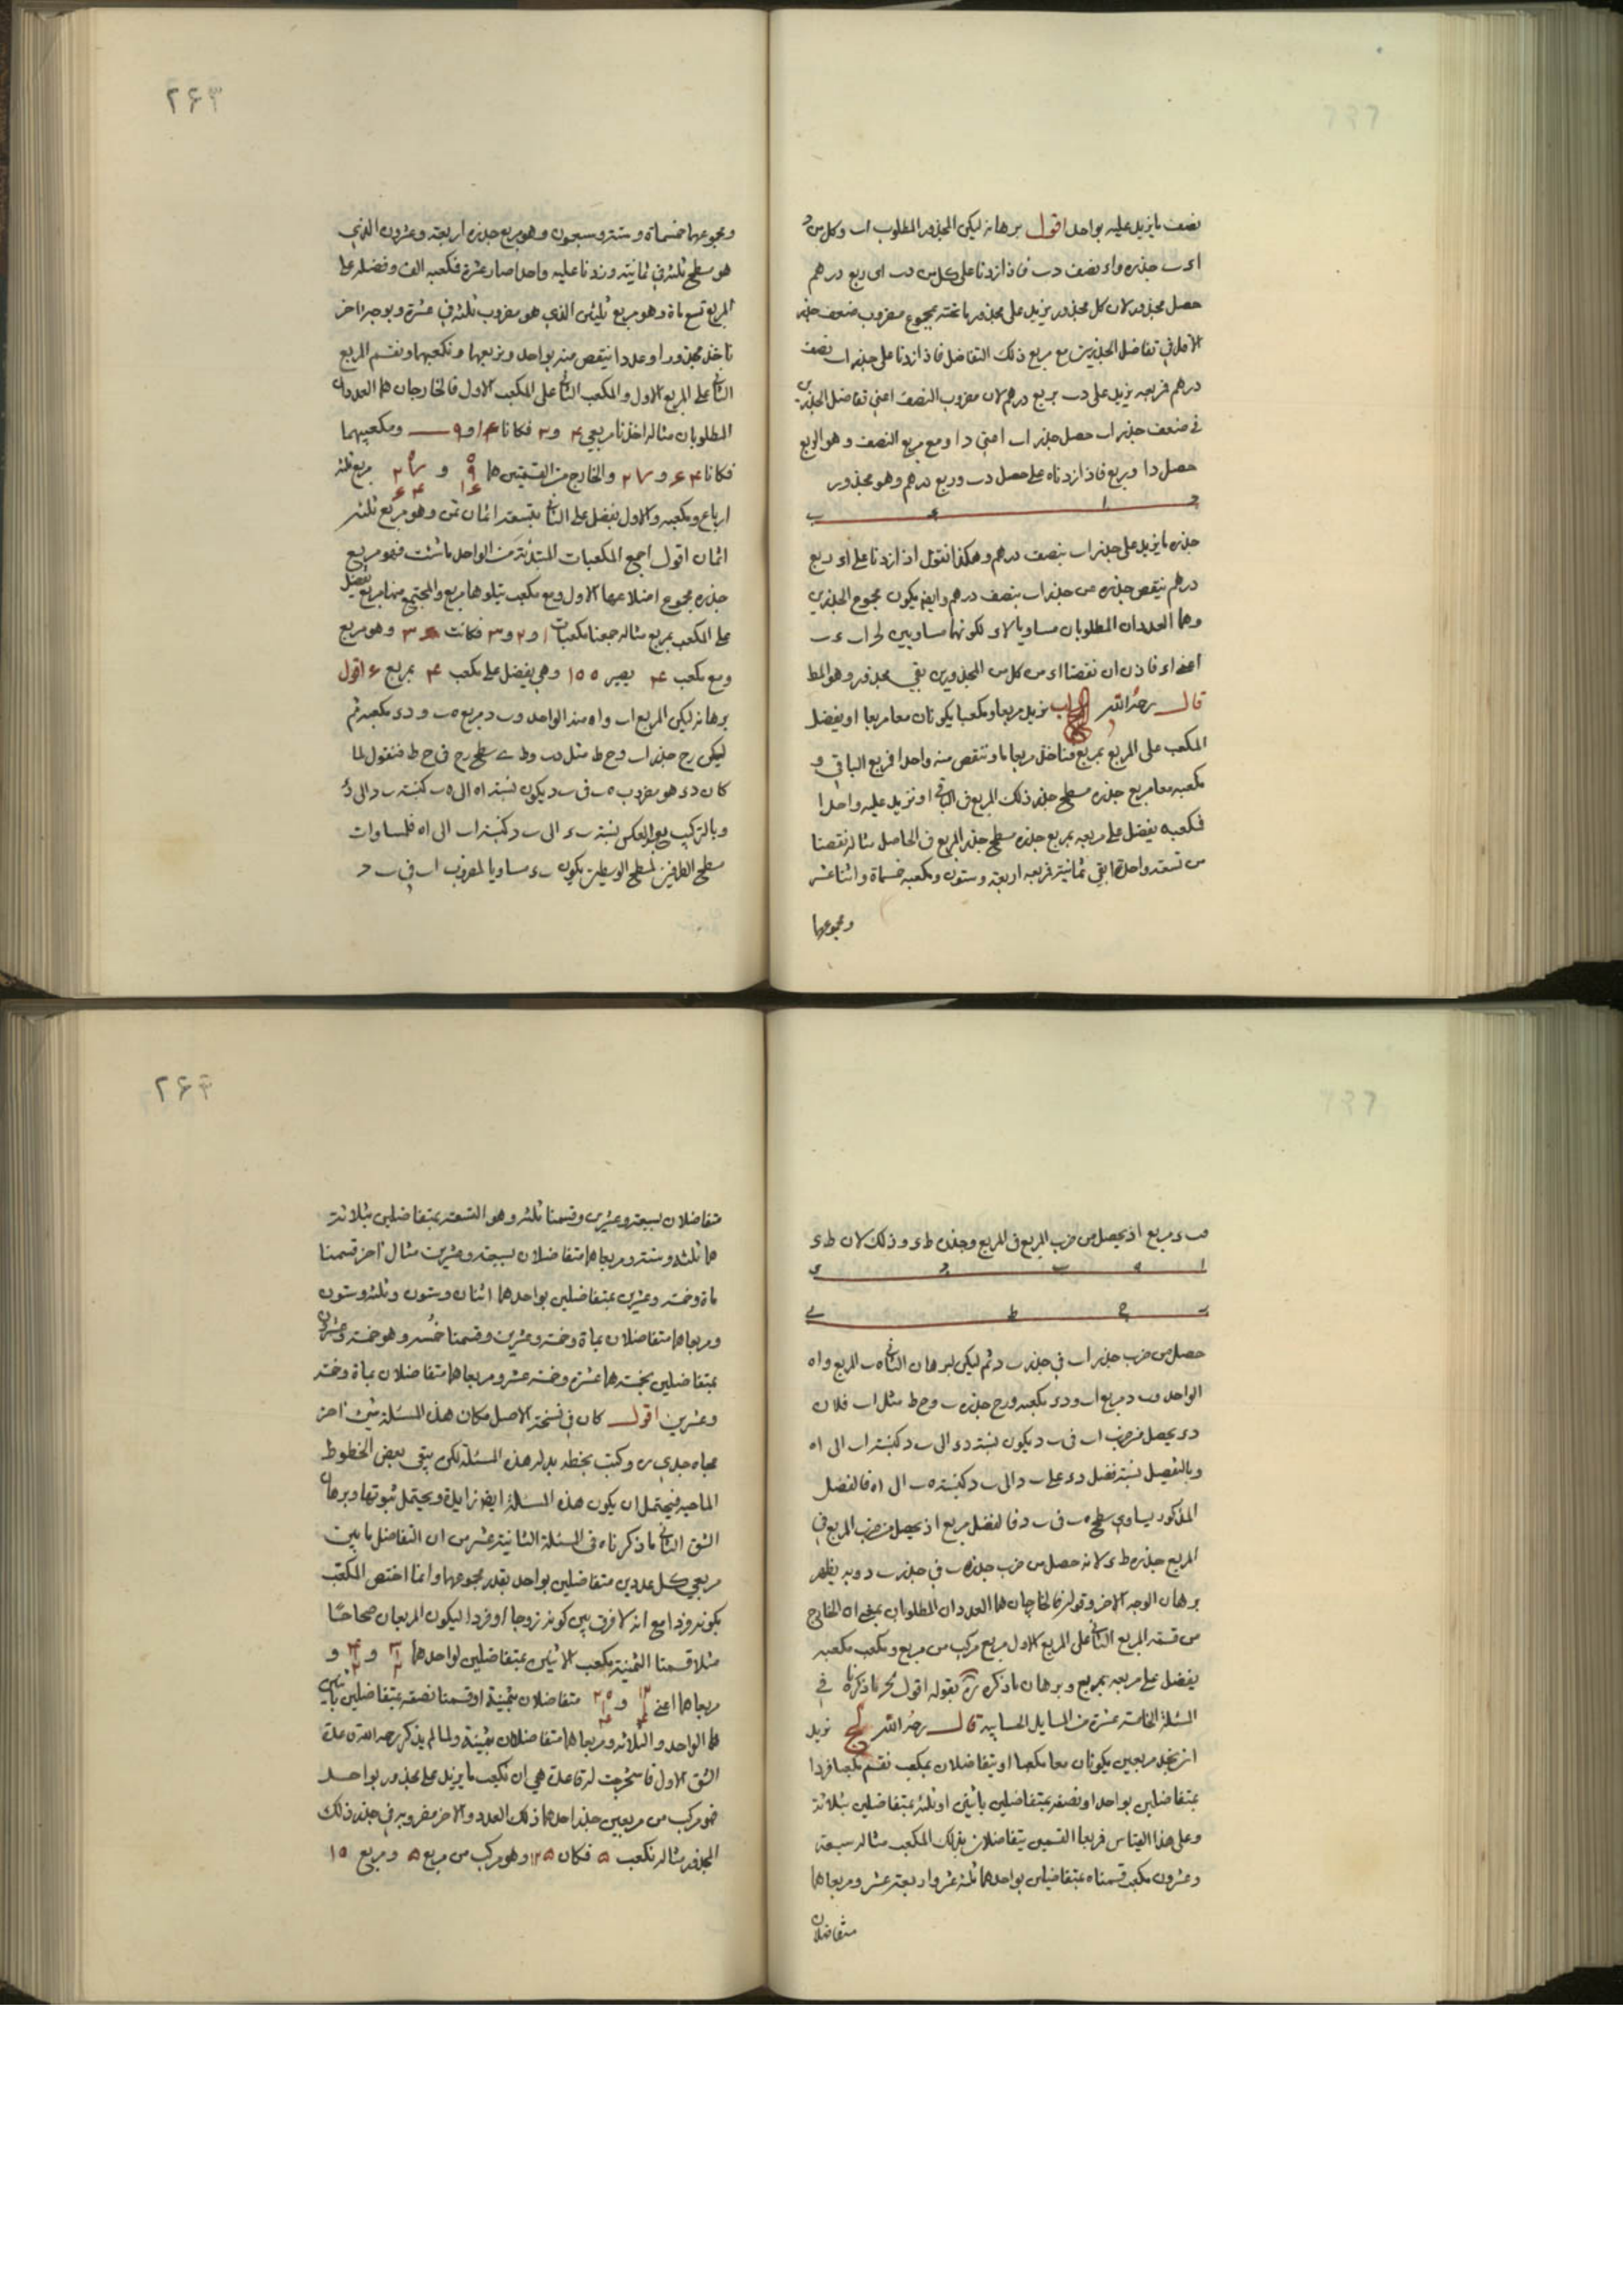 نصف ما يزيد عليه بواحد اقول برهانه ليكن المجذور المطلوب اب وكل من
اء ب جذره واء نصف دب فاذا زدنا على كل من دب اى ربع درهم
حصل مجذور لان كل مجذور يزيد على مجذور ما تحته بمجموع مضروب ضعف جذر
الاقل فى تفاضل الجذرين مع مربع ذلك التفاضل فاذا زدنا على جذر اب نصف
درهم فربعه يزيد على دب بربع درهم لان مضروب النصف اعنى تفاضل الجذرين
فى ضعف جذر اب حصل جذر اب اعنى دا ومع مربع النصف وهو الربع
حصل دا وربع فاذا زدناه على حصل دب وربع درهم وهو مجذور
جذره ما يزيد على جذر اب بنصف درهم وهكذا نقول اذا زدنا على اء ربع
درهم ينقص جذره من جذر اب بنصف درهم وايضا يكون مجموع الجذرين
وهما العددان المطلوبان مساويا لاء لكونهما مساويين
اعنى اء فاذن ان نقصنا اء من كل من المجذورين بقى مجذور وهو المط
قال رحمه الله نريد مربعا ومكعبا يكونان معا مربعا او يفضل
المكعب على المربع بمربع فناخذ مربعا ما وننقص منه واحدا فربع الباقى و
مكعبه معا مربع جذره مسطح جذر ذلك المربع فى الباقى او نزيد عليه واحدا
فكعبه يفضل على مربعه بمربع جذره مسطح جذر المربع فى الحاصل مثاله نقصنا
من تسعة واحدا بقى ثمانية فربعه اربعة وستون ومكعبه خمسماة واثنا عشر
ومجموعهما
٢٦٣
ومجموعهما خمسماة وستة وسبعون وهو مربع جذره اربعة وعشرون الذى
هو مسطح ثلثة فى ثمانية وزدنا عليه واحدا صار عشرة فكعبه الف وفضله على
المربع تسع ماة وهو مربع ثلثين الذى هو مضروب ثلثة فى عشرة وبوجه اخر
ناخذ مجذورا وعددا ينقص منه بواحد ونربعهما ونكعبهما ونقسم المربع
الثانى على المربع الاول والمكعب الثانى على المكعب الاول فالخارجان هما العددان
المطلوبان مثاله اخذنا مربعى ٤ و٣ فكانا ١٦ و٩ ومكعبيهما
فكانا ٦٤ و ٢٧ والخارج من القسمتين هما
ارباع ومكعبه والاول يفضل على الثانى بتسعة اثمان ثمن وهو مربع ثلثة
اثمان اقول اجمع المكعبات المبتدئة من الواحد ما شئت فهو مربع
جذره مجموع اضلاعها الاول ومع مكعب يتلوها مربع والمجتمع منها مربع يفضل
على المكعب بمربع مثاله جمعنا مكعبات ١ و٢ و٣ فكانت ٣٦ وهو مربع
ومع مكعب ٤ يصير ١٠٠ وهى يفضل على مكعب ٤ بمربع ٦ اقول
برهانه ليكن المربع اب واه منه الواحد وب د مربع ه ب و دى مكعبه ثم
ليكن رح جذر اب وح ط مثل دب وط ى مسطح رح فى ح ط فنقول لما
كان دى هو مضروب ه ب فى ب د يكون نسبة اه الى ه ب كنسبة ب د الى دى
وبالتركيب والعكس نسبة ب ى الى ب د كنسبة اب الى اه فلمساوات
مسطح الطرفين لمسطح الوسطين يكون ب ى مساويا لمضروب اب فى ب د
فب ى مربع اذ يحصل من ضرب المربع فى المربع وجذره ط ى وذلك لان ط ى
حصل من ضرب جذر اب فى جذر ب د ثم ليكن لبرهان الثانى ه ب المربع واه
الواحد وب د مربع اب ودى مكعبه ورح جذر ه ب وح ط مثل اب فلان
دى يحصل من ضرب اب فى ب د يكون نسبة دى الى ب د كنسبة اب الى اه
وبالتفصيل نسبة فضل دى على ب د الى ب د كنسبة ه ب الى اه فالفضل
المذكور يساوى مسطح ه ب فى ب د فالفضل مربع اذ يحصل من ضرب المربع فى
المربع جذره ط ى لانه حصل من ضرب جذر ه ب فى جذر ب د وبه يظهر
برهان الوجه الاخر وقوله فالخارجان هما العددان المطلوبان بمعنى ان الخارج
من قسمة المربع الثانى على المربع الاول مربع مركب من مربع ومكعب مكعبه
يفضل على مربعه بمربع وبرهان ما ذكره بقوله اقول نحو ما ذكرناه فى
المسئلة الخامسة عشرة من المسايل الحسابية قال رحمه الله لج نريد
ان نجد مربعين يكونان معا مكعبا او يتفاضلان بمكعب نقسم مكعبا فردا
بمتفاضلين بواحد او نصفه بمتفاضلين باثنين او ثلثه بمتفاضلين بثلاثة
وعلى هذا القياس فمربعا القسمين يتفاضلان بذلك المكعب مثاله سبعة
وعشرون مكعب قسمناه بمتفاضلين بواحد هما ثلثة عشر واربعة عشر ومربعاهما
متفاضلان
٢٦٤
متفاضلان بسبعة وعشرين وقسمنا ثلثه وهو التسعة بمتفاضلين بثلاثة
هما ثلثة وستة ومربعاهما متفاضلان بسبعة وعشرين مثال اخر قسمنا
ماة وخمسة وعشرين بمتفاضلين بواحد هما اثنان وستون وثلثة وستون
ومربعاهما متفاضلان بماة وخمسة وعشرين وقسمنا خمسه وهو خمسة وعشرون
بمتفاضلين بخمسة هما عشرة وخمسة عشر ومربعاهما متفاضلان بماة وخمسة
وعشرين اقول كان فى نسخة الاصل مكان هذه المسئلة شئ اخر
محاه جدى ره وكتب بخطه بدله هذه المسئلة لكن بقى بعض الخطوط
الماحية فيحتمل ان يكون هذه المسئلة ايضا زايلة ويحتمل ثبوتها وبرهان
الشق الثانى ما ذكرناه فى المسئلة الثانية عشر من ان التفاضل ما بين
مربعى كل عددين متفاضلين بواحد بقدر مجموعهما وانما اختص المكعب
بكونه فردا مع انه لا فرق بين كونه زوجا او فردا ليكون المربعان صحاحا
مثلا قسمنا الثمنية مكعب الاثنين بمتفاضلين بواحد هما
مربعاهما اعنى متفاضلان بثمنية او قسمنا نصفه بمتفاضلين باثنين
هما الواحد والثلاثة ومربعاهما متفاضلان بثمنية ولما لم يذكر رحمه الله قاعدة
الشق الاول فاستخرجت له قاعدة هى ان مكعب ما يزيد على مجذور بواحد
فهو مركب من مربعين جذر احدهما ذلك العدد والاخر مضروبه فى جذر ذلك
المجذور مثاله نكعب ٥ فكان ١٢٥ وهو مركب من مربع ٥ ومربع ١٠